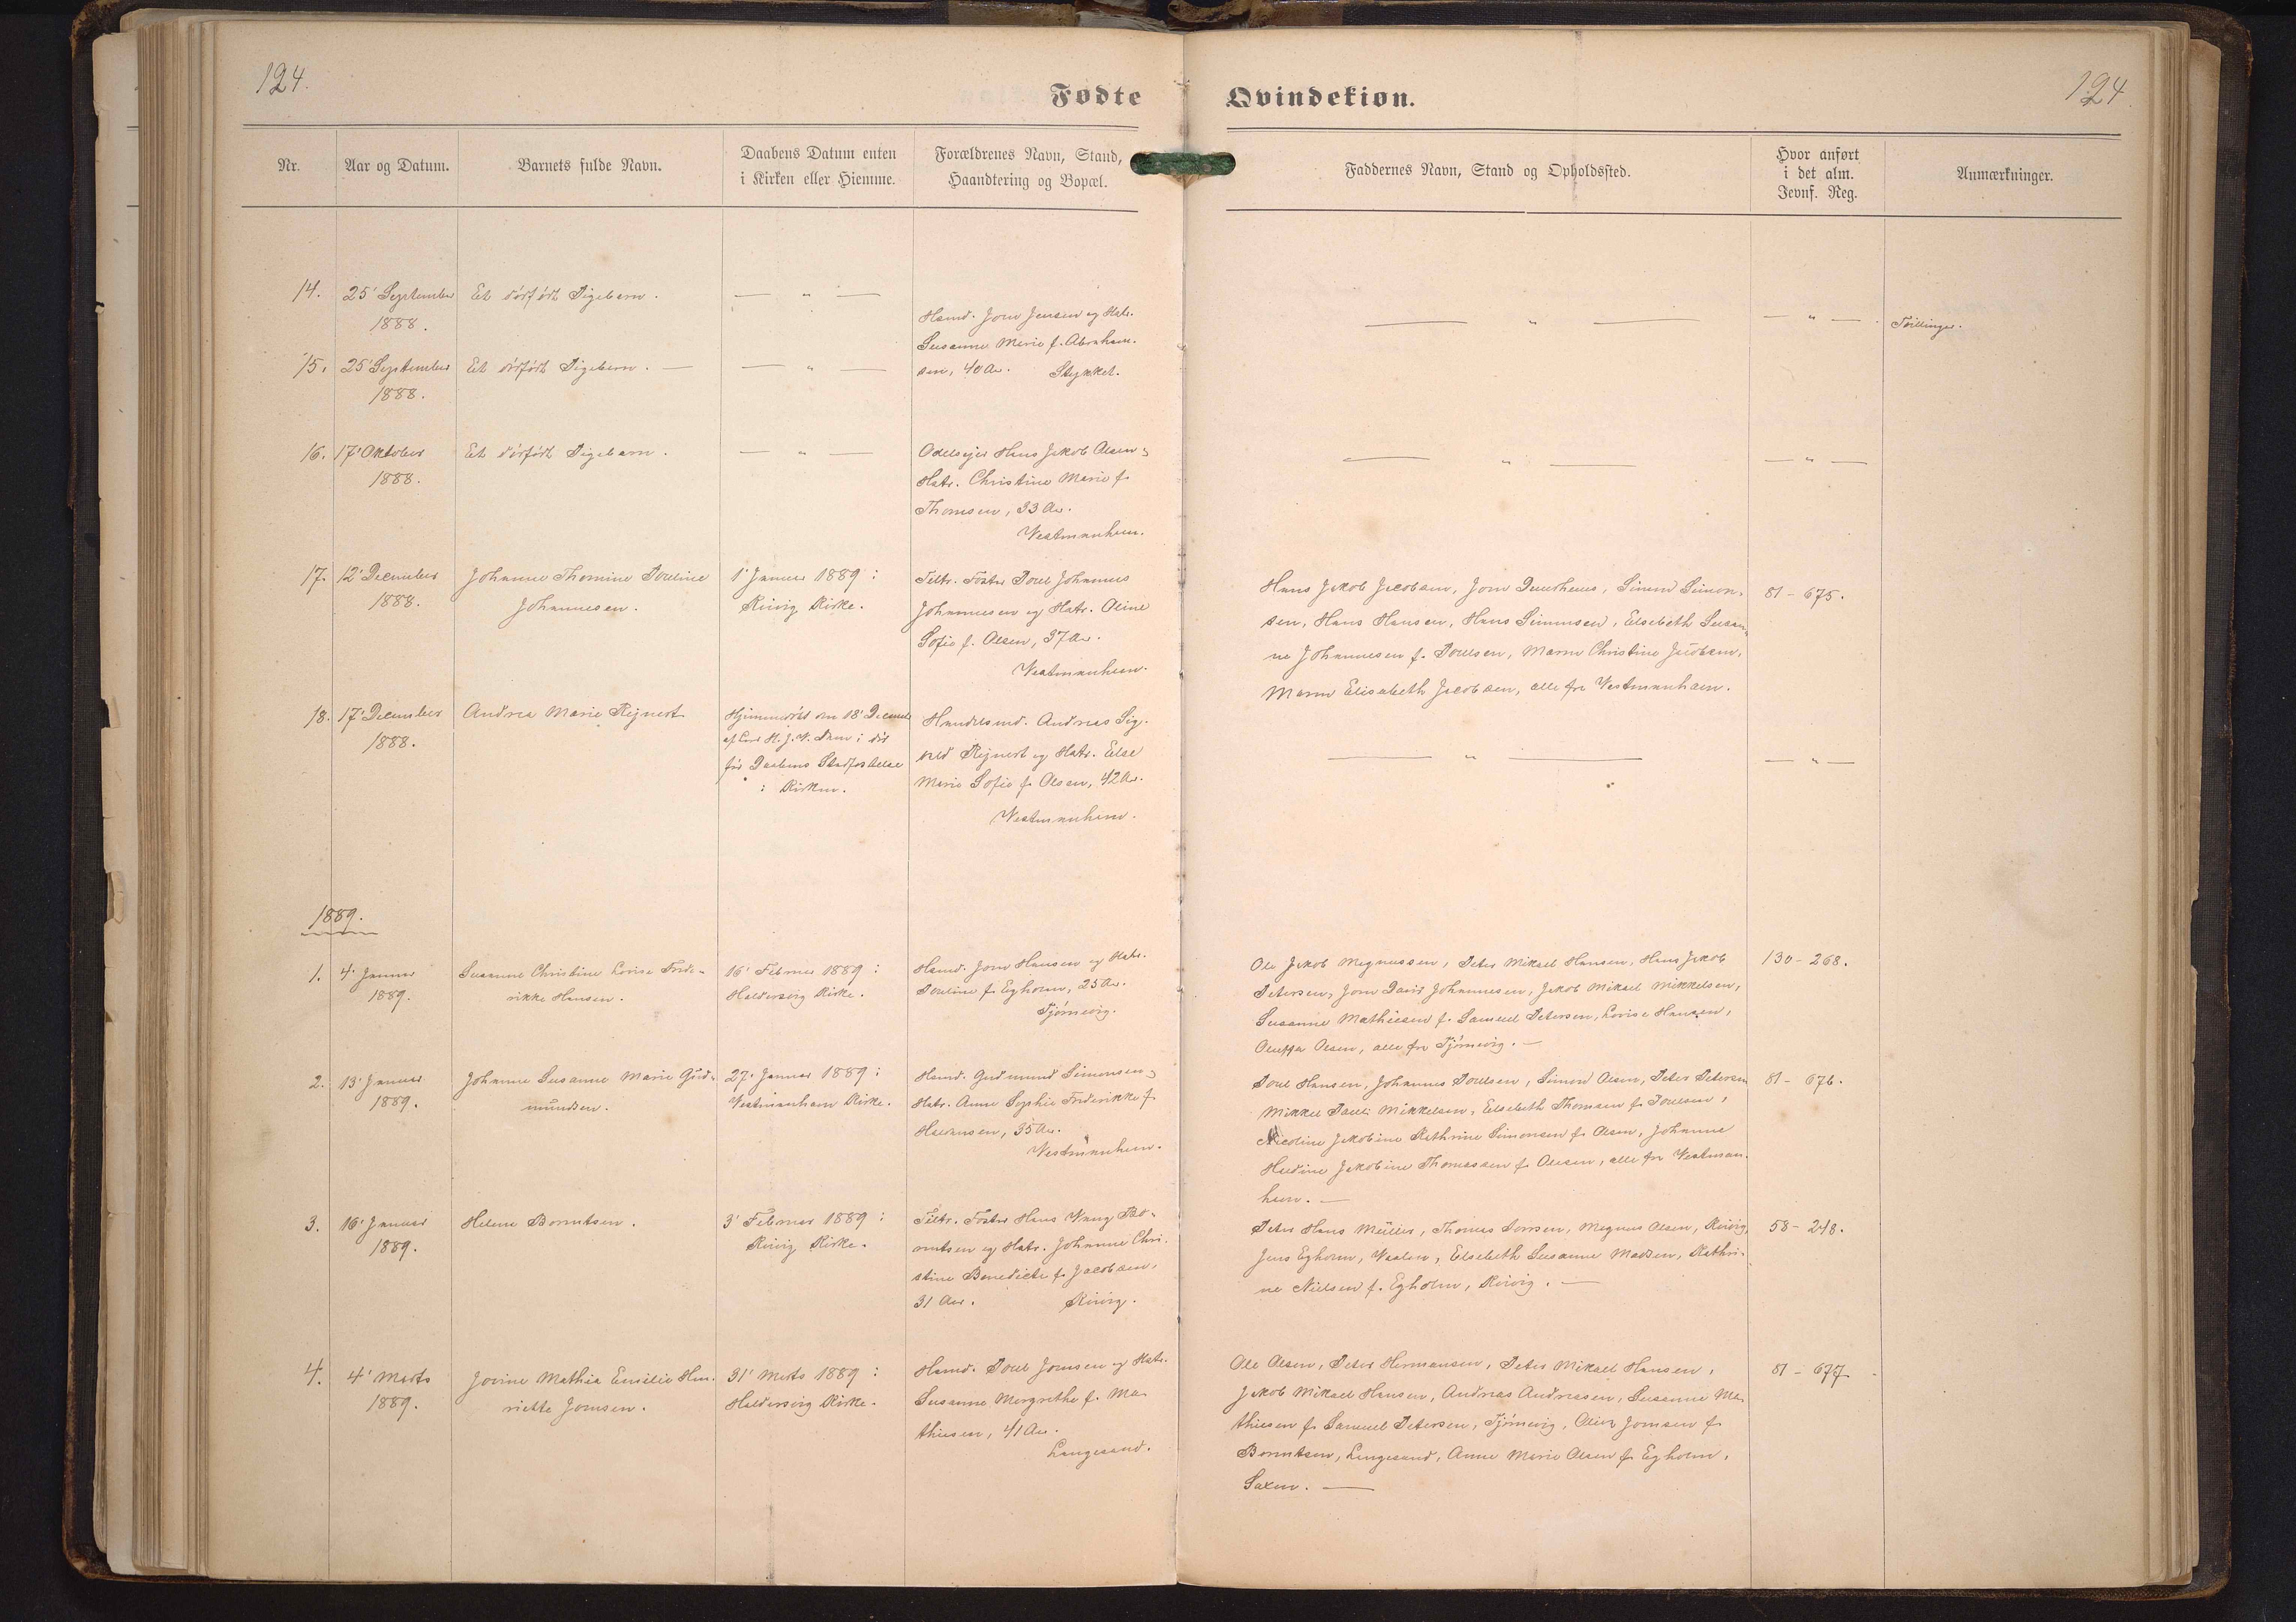 124.
Fødte
Qvindekiøn.
124.
Nr.
Aar og Datum.
Barnets fulde Navn.
Daabens Datum enten
i Kirken eller Hiemme.
Forældrenes Navn, Stand,
Haandtering og Bopæl.
Faddernes Navn, Stand og Opholdssted.
Hvor anført
i det alm.
Jevnf. Reg.
Anmærkninger.
14.
25' September
1888.
Et dødfødt Pigebarn.
— " —
Hsmd. Jom Jensen og Hstr.
Susanne Marie f. Abraham-
sen, 40 Ar. Stykket.
— " —
— " —
Tvillinger.
15.
25' September
1888.
Et dødfødt Pigebarn. —
— " —
16.
17' Oktober
1888.
Et dødfødt Pigebarn.
— " —
Odelsejer Hans Jakob Olsen
Hstr. Christine Marie f.
Thomsen, 33 Ar.
Vestmanhavn.
— " —
— " —
17.
12' December
1888.
Johanne Thomine Pouline
Johannesen.
1' Januar 1889 i
Kvivig Kirke.
Poul Johannes
Johannesen og Hstr. Oline
Sofie f. Olsen, 37 Ar.
Vestmanhavn.
Hans Jakob Jacobsen, Jom Simon Simon-
sen, Hans Hansen, Hans Simonsen, Elsebeth Susan-
ne Johannesen f. Poulsen, Maren Christine Jacobsen,
Maren Elisabeth Jacobsen, alle fra Vestmanhavn.
81 - 675.
18.
17' December
1888.
Andrea Marie Rejnert
Hjemmedøbt den 18' Decemb
af H. J. V. Dam i død
før Daabens Stadfæstelse
i Kirken.
Handelsmd. Andreas Sig-
vald Rejnert og Hstr. Else
Marie Sofie f. Olsen, 42 Ar.
Vestmanhavn.
— " —
— " —
1889.
1.
4' Januar
1889.
Susanne Christine Lovise Frede-
rikke Hansen.
16' Februar 1889 i
Haldersvig Kirke.
Hsmd. Jom Hansen og Hstr.
Pouline f. Egholm, 25 Ar.
Tjørnevig.
Ole Jakob Magnussen, Peter Mikael Hansen, Hans Jakob
Petersen, Jom David Johannesen, Jakob Mikael Mikkelsen,
Susanne Mathiesen f. Samuel Petersen, Lovise Hansen,
Olsen, alle fra Tjørnevig. —
130 - 268.
2.
13' Januar
1889.
Johanne Susanne Marie Gud-
mundsen.
27' Januar 1889 i
Vestmanhavn Kirke.
Hsmd. Gudmund Simonsen
Hstr. Anne Sophie Frederikke f.
35 Ar.
Vestmanhavn.
Poul Hansen, Johannes Poulsen, Simon Olsen, Peter Petersen
Mikkel Pauli Mikkelsen, Elsebeth Thomsen f. Poulsen,
Nicoline Jakobine Kathrine Simonsen f. Olsen, Johanne
Jakobine Thomassen f. Olesen, alle fra Vestman-
havn. —
81 - 676.
3.
16' Januar
1889.
Helene Berntsen.
3' Februar 1889 i
Kvivig Kirke.
Hans
og Hstr. Johanne Chri-
stine Benedicte f. Jacobsen,
31 Ar. Kvivig.
Peter Hans Müller, Thomas Magnus Olsen, Kvivig,
Jens Egholm, Elsebeth Susanne Madsen, Kathri-
ne Nielsen f. Egholm, Kvivig. —
58 - 248.
4.
4' Marts
1889.
Jovine Mathea Emilie Hen-
riette Jomsen.
31' Marts 1889 i
Haldersvig Kirke.
Hsmd. Poul Jomsen og Hstr.
Susanne Margrethe f. Ma-
thiesen, 41 Ar.
Langesand.
Ole Olsen, Peter Hermansen, Peter Mikael Hansen,
Jakob Mikael Hansen, Andreas Andreasen, Susanne Ma-
thiesen f. Samuel Petersen, Tjørnevig, Jomsen f.
Berntsen, Langesand, Anne Marie Olsen f. Egholm,
Saxen. —
81 - 677